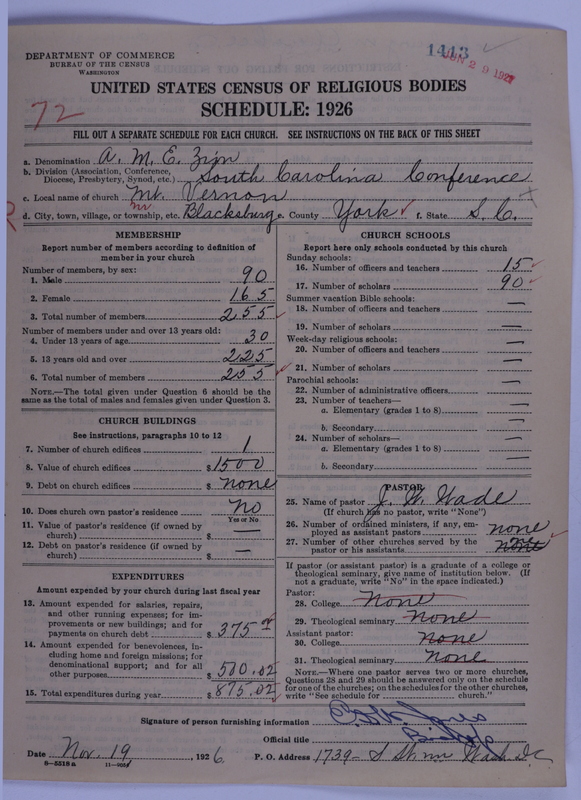 1413
JUN 29 1927
DEPARTMENT OF COMMERCE
BUREAU OF THE CENSUS
WASHINGTON
UNITED STATES CENSUS OF RELIGIOUS BODIES
SCHEDULE: 1926
72
FILL OUT A SEPARATE SCHEDULE FOR EACH CHURCH. SEE INSTRUCTIONS ON THE BACK OF THIS SHEET
a. Denomination A. M. E. Zion
b. Division (Association, Conference, Diocese, Presbytery, Synod, etc.) South Carolina Conference
c. Local name of church Mt. Vernon
d. City, town, village, or township, etc. nr Blacksburg e. County York f. State S. C.
MEMBERSHIP
Report number of members according to definition of
member in your church
Number of members, by sex:
1. Male 90
2. Female 165
3. Total number of members 255
Number of members under and over 13 years old:
4. Under 13 years of age 30
5. 13 years old and over 225
6. Total number of members 255
NOTE.—The total given under Question 6 should be
same as the total of males and females given under Question 3.
CHURCH BUILDINGS
See instructions, paragraphs 10 to 12
7. Number of church edifices 1
8. Value of church edifices $ 1500
9. Debt on church edifices $ none
10. Does church own pastor's residence No
Yes or No
11. Value of pastor's residence (if owned by
church) $ —
12. Debt on pastor's residence (if owned by
church) $ —
EXPENDITURES
Amount expended by your church during last fiscal year
13. Amount expended for salaries, repairs,
and other running expenses; for im-
provements or new buildings; and for
payments on church debt $ 375.00
14. Amount expended for benevolences, in-
cluding home and foreign missions; for
denominational support; and for all
other purposes $ 500.02
15. Total expenditures during year $ 875.02
CHURCH SCHOOLS
Report here only schools conducted by this church
Sunday schools:
16. Number of officers and teachers 15
17. Number of scholars 90
Summer vacation Bible schools:
18. Number of officers and teachers —
19. Number of scholars —
Week-day religious schools:
20. Number of officers and teachers —
21. Number of scholars —
Parochial schools:
22. Number of administrative officers —
23. Number of teachers—
a. Elementary (grades 1 to 8) —
b. Secondary —
24. Number of scholars—
a. Elementary (grades 1 to 8) —
b. Secondary —
PASTOR
25. Name of pastor J. W. Wade
(If church has no pastor, write "None")
26. Number of ordained ministers, if any, em-
ployed as assistant pastors none
27. Number of other churches served by the
pastor or his assistants none
If pastor (or assistant pastor) is a graduate of a college or
theological seminary, give name of institution below. (If
not a graduate, write "No" in the space indicated.)
Pastor:
28. College None
29. Theological seminary None
Assistant pastor:
30. College None
31. Theological seminary None
NOTE.—Where one pastor serves two or more churches,
Questions 28 and 29 should be answered only on the schedule
for one of the churches; on the schedules for the other churches,
write "See schedule for church."
Signature of person furnishing information
Official title Bishop
Date Nov. 19, 1926. P. O. Address 1739
8—5518 a